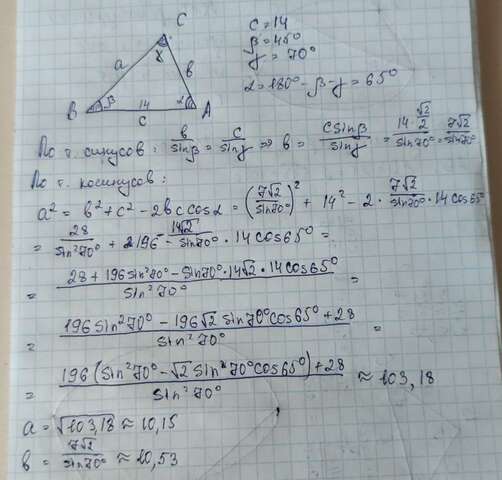 C
c = 14
β = 45°
γ = 70°
α = 180° - β - γ = 65°
a γ b
B β 14 α A
c
По т. синусов: b/sinβ = c/sinγ ⇒ b = c sinβ/sinγ = (14·√2/2)/sin70° = 7√2/sin70°
По т. косинусов:
a² = b² + c² - 2bc cosα = (7√2/sin70°)² + 14² - 2 · 7√2/sin70° · 14 cos65°
= 28/sin²70° + 196 - 14√2/sin70° · 14 cos65° =
= (28 + 196 sin²70° - sin70° · 14√2 · 14 cos65°)/sin²70° =
= (196 sin²70° - 196√2 sin70° cos65° + 28)/sin²70° =
= (196 (sin²70° - √2 sin70° cos65°) + 28)/sin²70° ≈ 103,18
a = √103,18 ≈ 10,15
b = 7√2/sin70° ≈ 10,53